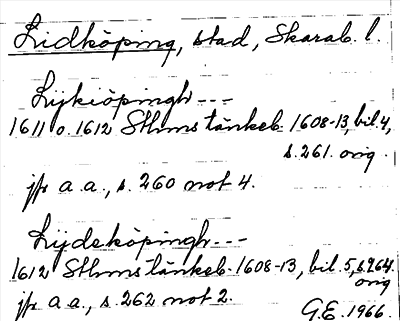 Lidköping, stad, Skarab. l.
Lijkiöpingh---
1611 o. 1612 Sthms tänkeb. 1608-13, bil. 4,
s. 261. orig.
jfr a.a., s. 260 not 4.
Lijdeköpingh---
1612 Sthms tänkeb. 1608-13, bil. 5, s. 264.
orig
jfr a a., s. 262 not 2.
G.E. 1966.